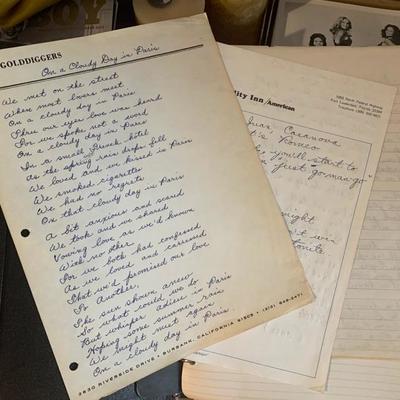 GOLDDIGGERS
On a Cloudy Day in Paris
We met on the street
Where most lovers meet
On a cloudy day in Paris
Thru our eyes love was heard
For we spoke not a word
On a cloudy day in Paris
In a small French hotel
As the spring rain drops fell
We loved and we kissed in Paris
We smoked cigarettes
We had no regrets
On that cloudy day in Paris
A bit anxious and scared
We took and we shared
Vowing love as we'd known
With no other
For we both had confessed
As we loved and caressed
That we'd promised our love
To another.
The sun shown anew
So what could we do
But whisper adieu in Paris
Hoping some summer rain
We might meet again
On a cloudy day in Paris.
3630 RIVERSIDE DRIVE • BURBANK, CALIFORNIA 91505 • (213)
lity Inn/American
Fort Lauderdale, Florida
Juan Casanova
Romeo
you'll start to
just go man go"
night